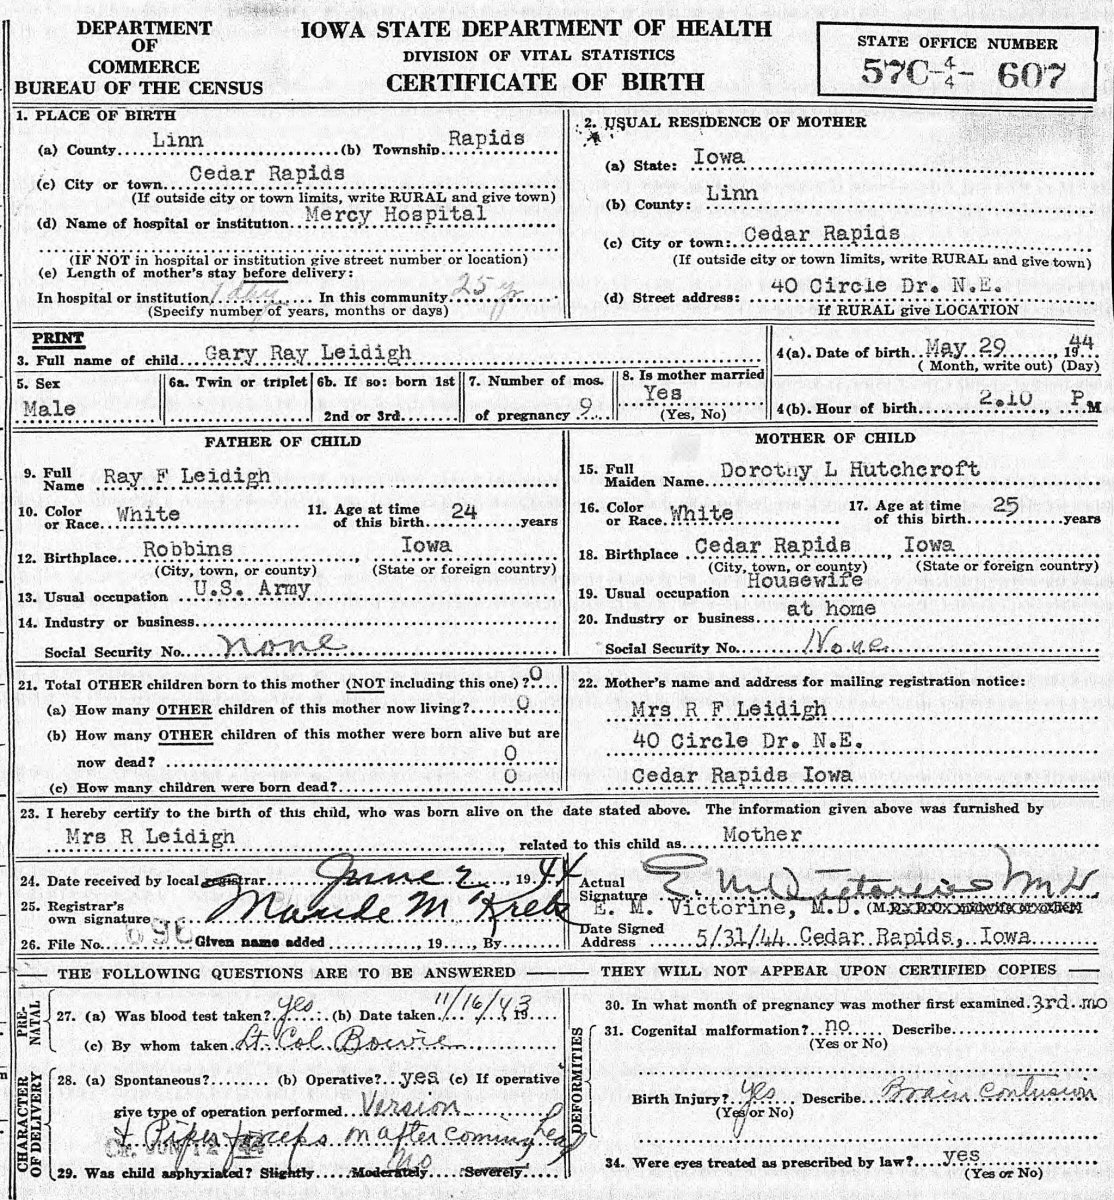 DEPARTMENT
OF
COMMERCE
BUREAU OF THE CENSUS
IOWA STATE DEPARTMENT OF HEALTH
DIVISION OF VITAL STATISTICS
CERTIFICATE OF BIRTH
STATE OFFICE NUMBER
57C-4/4- 607
1. PLACE OF BIRTH
(a) County Linn (b) Township Rapids
(c) City or town Cedar Rapids
(If outside city or town limits, write RURAL and give town)
(d) Name of hospital or institution Mercy Hospital
(IF NOT in hospital or institution give street number or location)
(e) Length of mother's stay before delivery:
In hospital or institution 1 day In this community 25 y
(Specify number of years, months or days)
2. USUAL RESIDENCE OF MOTHER
(a) State: Iowa
(b) County: Linn
(c) City or town: Cedar Rapids
(If outside city or town limits, write RURAL and give town)
(d) Street address: 40 Circle Dr. N.E.
If RURAL give LOCATION
PRINT
3. Full name of child Gary Ray Leidigh
4(a). Date of birth May 29, 1944
(Month, write out) (Day)
5. Sex
Male
6a. Twin or triplet
6b. If so: born 1st
2nd or 3rd
7. Number of mos.
of pregnancy 9
8. Is mother married
Yes
(Yes, No)
4(b). Hour of birth 2.10, P.M
FATHER OF CHILD
9. Full
Name Ray F Leidigh
10. Color
or Race White
11. Age at time
of this birth 24 years
12. Birthplace Robbins, Iowa
(City, town, or county) (State or foreign country)
13. Usual occupation U.S. Army
14. Industry or business
Social Security No. none
MOTHER OF CHILD
15. Full
Maiden Name Dorothy L Hutchcroft
16. Color
or Race White
17. Age at time
of this birth 25 years
18. Birthplace Cedar Rapids, Iowa
(City, town, or county) (State or foreign country)
19. Usual occupation Housewife
20. Industry or business at home
Social Security No. None
21. Total OTHER children born to this mother (NOT including this one)? 0
(a) How many OTHER children of this mother now living? 0
(b) How many OTHER children of this mother were born alive but are
now dead? 0
(c) How many children were born dead? 0
22. Mother's name and address for mailing registration notice:
Mrs R F Leidigh
40 Circle Dr. N.E.
Cedar Rapids Iowa
23. I hereby certify to the birth of this child, who was born alive on the date stated above. The information given above was furnished by
Mrs R Leidigh, related to this child as Mother
24. Date received by local registrar June 2, 1944
25. Registrar's
own signature Maude M Krebs
26. File No. 696 Given name added , 19 , By
Actual
Signature E. M. Victorine M D
E. M. Victorine, M.D. (M.D.
Date Signed
Address 5/31/44 Cedar Rapids, Iowa
THE FOLLOWING QUESTIONS ARE TO BE ANSWERED — THEY WILL NOT APPEAR UPON CERTIFIED COPIES
PRE-NATAL
27. (a) Was blood test taken? yes (b) Date taken 11/16/43, 19
(c) By whom taken Lt Col Bowie
CHARACTER OF DELIVERY
28. (a) Spontaneous? (b) Operative? yes (c) If operative
give type of operation performed Version
+ Piper forceps on after coming head
JUN 12 '44
29. Was child asphyxiated? Slightly Moderately Severely No
30. In what month of pregnancy was mother first examined 3rd mo
DEFORMITIES
31. Cogenital malformation? no Describe
(Yes or No)
Birth Injury? yes Describe Brain contusion
(Yes or No)
34. Were eyes treated as prescribed by law? yes
(Yes or No)